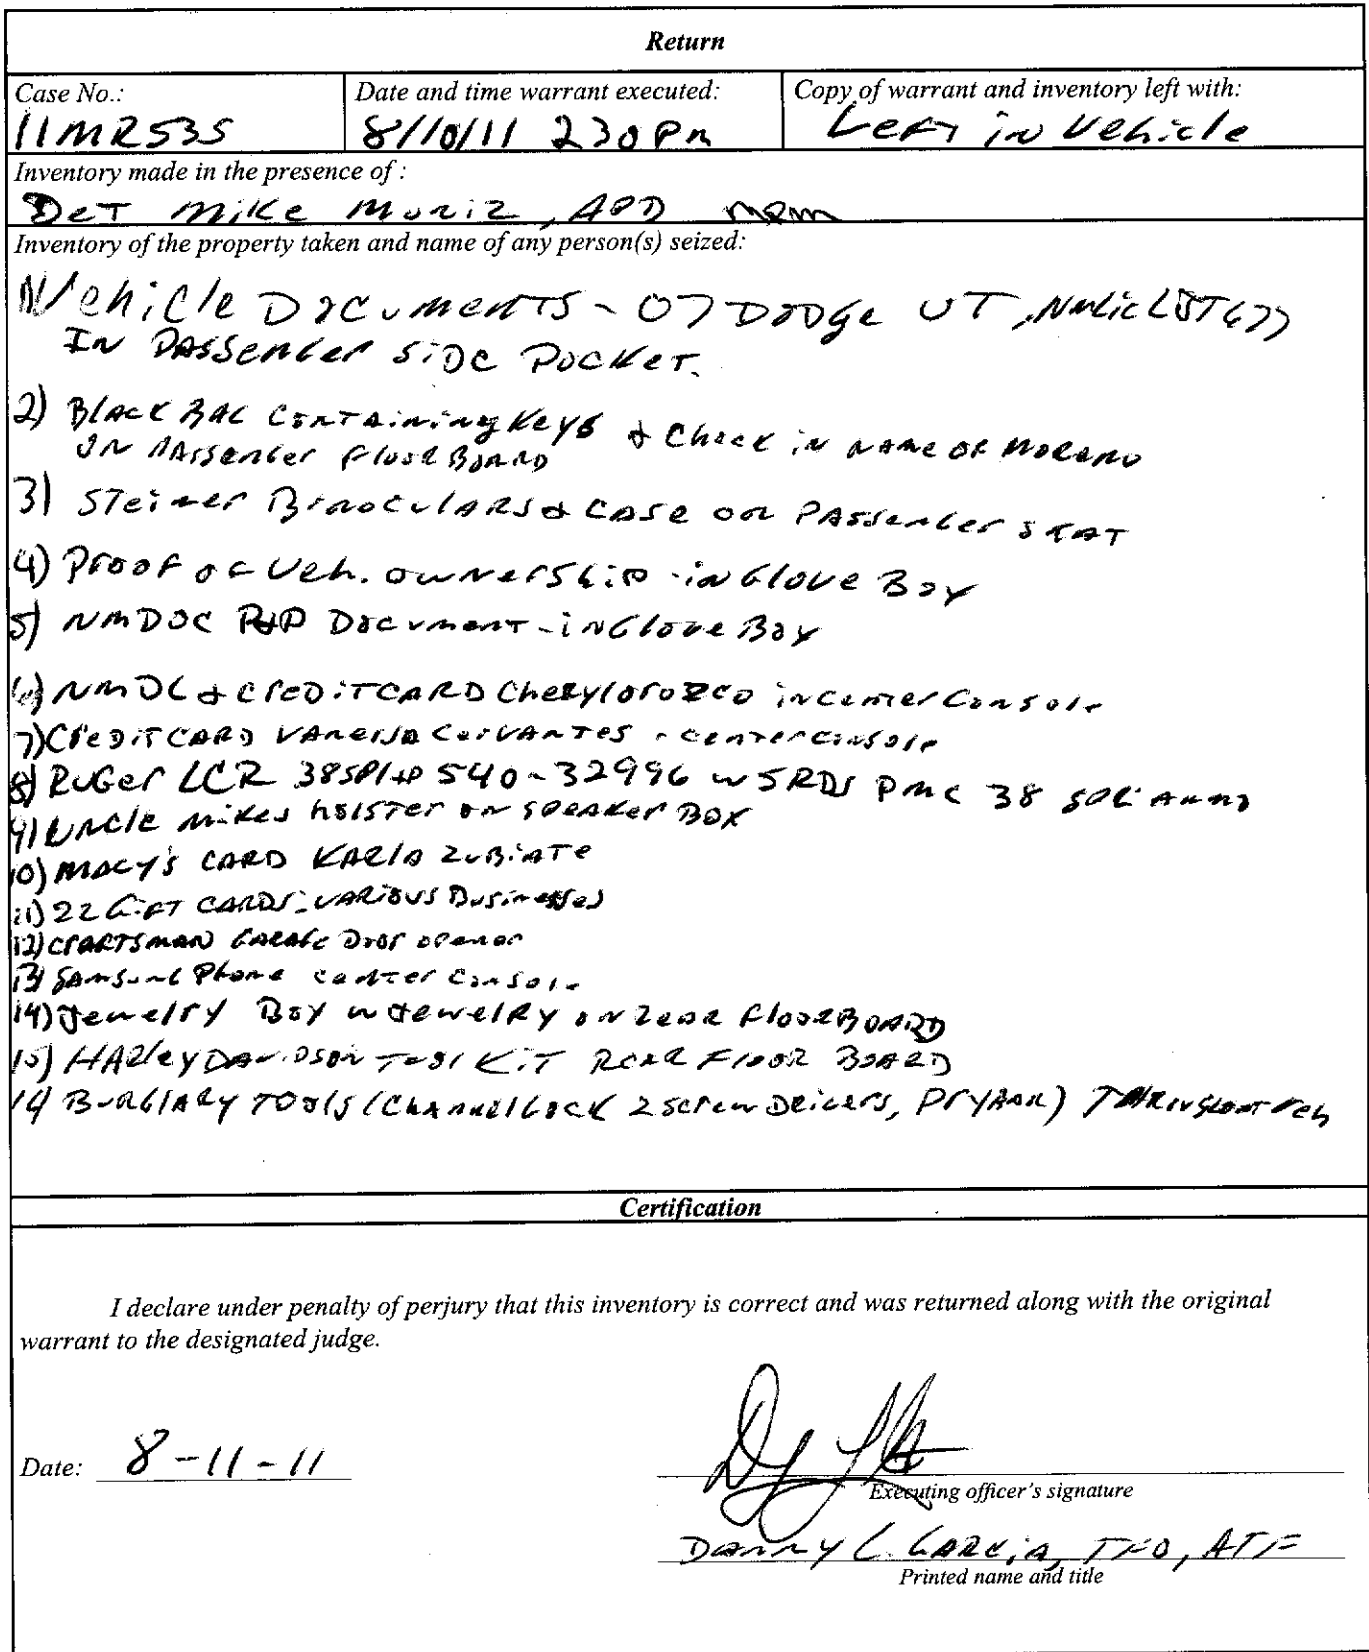 Return
Case No.: Date and time warrant executed: Copy of warrant and inventory left with:
11MR535 8/10/11 230 Pm Left in Vehicle
Inventory made in the presence of :
Det Mike Muniz, APD mem
Inventory of the property taken and name of any person(s) seized:
1) Vehicle Documents - 07 Dodge UT, Nmlic
In Passenger Side Pocket.
2) Black Bag Containing Keys & Check in name of Moreno
on Passenger Floor Board
3) Steiner Binoculars & Case on Passenger Seat
4) Proof of Veh. ownership - in Glove Box
5) NMDOC P&P Document - in Glove Box
6) NMDL & Credit Card Cheryl Orozco in Center Console
7) Credit Card Vanessa Cervantes - center console
8) Ruger LCR 38Spl+P 540-32996 w 5 RDS PMC 38 Spl Ammo
9) Uncle Mikes holster on speaker Box
10) Macy's Card Karla Zubiate
11) 22 Gift Cards, various Businesses
12) Craftsman Garage Door opener
13) Samsung Phone center console
14) Jewelry Box w Jewelry on Rear FloorBoard
15) Harley Davidson Tool Kit Rear Floor Board
16) Burglary Tools (Channellock 2 screw Drivers, Prybar) Throughout Veh
Certification
I declare under penalty of perjury that this inventory is correct and was returned along with the original
warrant to the designated judge.
Date: 8-11-11
Executing officer's signature
Danny L. Garcia, TFO, ATF
Printed name and title